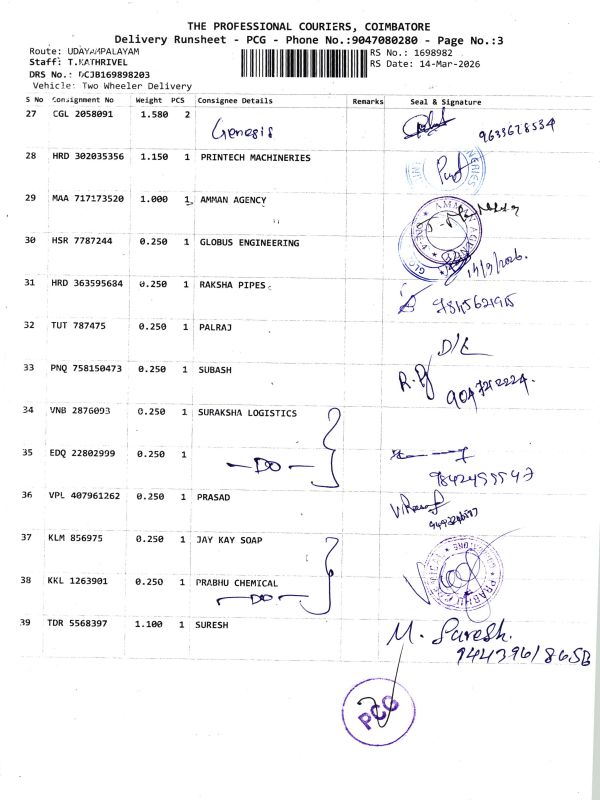 THE PROFESSIONAL COURIERS, COIMBATORE
Delivery Runsheet - PCG - Phone No.:9047080280 - Page No.:3
Route: UDAYAMPALAYAM
RS No.: 1698982
Staff: T.KATHRIVEL
RS Date: 14-Mar-2026
DRS No.: DCJB169898203
Vehicle: Two Wheeler Delivery
S No Consignment No Weight PCS Consignee Details Remarks Seal & Signature
27 CGL 2058091 1.580 2 Genesis 9633678534
28 HRD 302035356 1.150 1 PRINTECH MACHINERIES
29 MAA 717173520 1.000 1 AMMAN AGENCY
30 HSR 7787244 0.250 1 GLOBUS ENGINEERING
31 HRD 363595684 0.250 1 RAKSHA PIPES
32 TUT 787475 0.250 1 PALRAJ
33 PNQ 758150473 0.250 1 SUBASH
34 VNB 2876093 0.250 1 SURAKSHA LOGISTICS
35 EDQ 22802999 0.250 1 -DO-
36 VPL 407961262 0.250 1 PRASAD
37 KLM 856975 0.250 1 JAY KAY SOAP
38 KKL 1263901 0.250 1 PRABHU CHEMICAL
-DO-
39 TDR 5568397 1.100 1 SURESH M. Suresh.
PCG